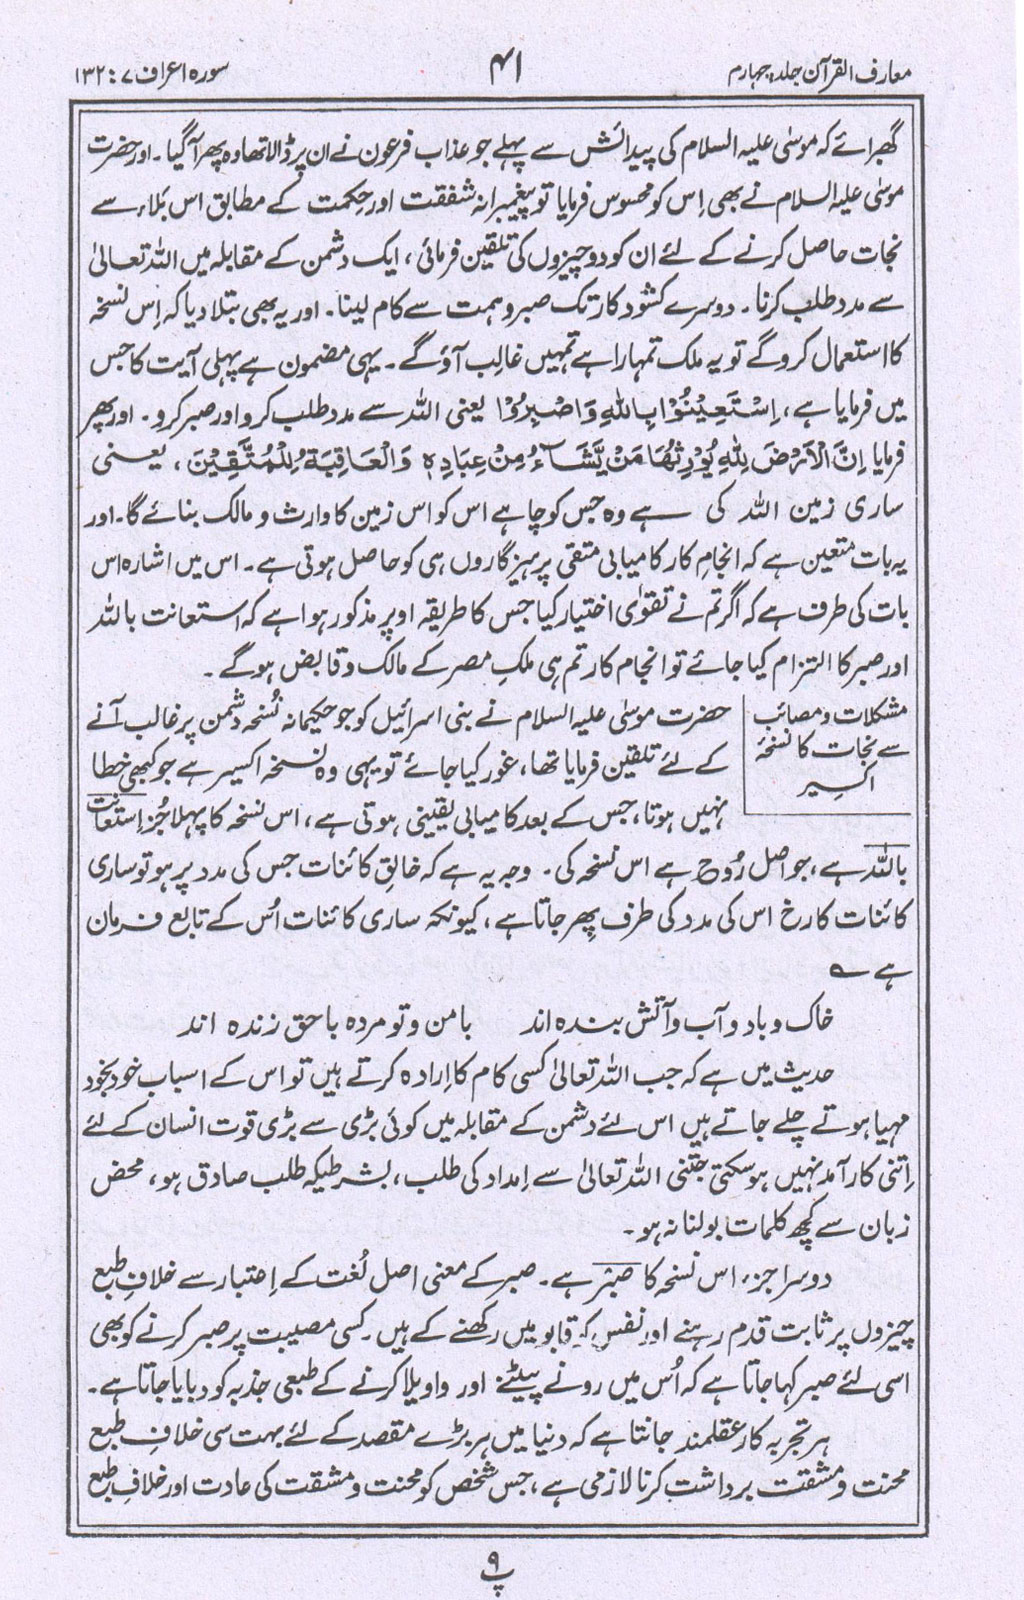 معارف القرآن جلد چہارم
۴۱
سورہ اعراف ۷ : ۱۳۲
گھبرائے کہ موسیٰ علیہ السلام کی پیدائش سے پہلے جو عذاب فرعون نے ان پر ڈالا تھا وہ پھر آ گیا ۔ اور حضرت
موسیٰ علیہ السلام نے بھی اِس کو محسوس فرمایا تو پیغمبرانہ شفقت اور حِکمت کے مطابق اس بَلاء سے
نجات حاصل کرنے کے لئے ان کو دو چیزوں کی تلقین فرمائی ، ایک دشمن کے مقابلہ میں اللہ تعالیٰ
سے مدد طلب کرنا ۔ دوسرے کشود کار تک صبر و ہمت سے کام لینا ۔ اور یہ بھی بتلا دیا کہ اِس نسخہ
کا استعمال کرو گے تو یہ ملک تمہارا ہے تمہیں غالِب آؤ گے ۔ یہی مضمون ہے پہلی آیت کا جس
میں فرمایا ہے ، اِسْتَعِیْنُوْا بِاللّٰهِ وَاصْبِرُوْا یعنی اللہ سے مدد طلب کرو اور صبر کرو ۔ اور پھر
فرمایا اِنَّ الْاَرْضَ لِلّٰهِ یُوْرِثُهَا مَنْ یَّشَآءُ مِنْ عِبَادِهٖ وَالْعَاقِبَةُ لِلْمُتَّقِیْنَ ، یعنی
ساری زمین اللہ کی ہے وہ جس کو چاہے اس کو اس زمین کا وارث و مالک بنائے گا ۔ اور
یہ بات متعین ہے کہ انجامِ کار کامیابی متقی پرہیزگاروں ہی کو حاصل ہوتی ہے ۔ اس میں اشارہ اس
بات کی طرف ہے کہ اگر تم نے تقوٰی اختیار کیا جس کا طریقہ اوپر مذکور ہوا ہے کہ استعانت باللہ
اور صبر کا التزام کیا جائے تو انجام کار تم ہی ملکِ مصر کے مالک و قابض ہو گے ۔
مشکلات و مصائب
سے نجات کا نسخۂ
اکسیر
حضرت موسیٰ علیہ السلام نے بنی اسرائیل کو جو حکیمانہ نُسخہ دشمن پر غالب آنے
کے لئے تلقین فرمایا تھا ، غور کیا جائے تو یہی وہ نسخہ اکسیر ہے جو کبھی خطا
نہیں ہوتا ، جس کے بعد کامیابی یقینی ہوتی ہے ، اس نسخہ کا پہلا جُز اِستعانت
باللہ ہے ، جو اصل رُوح ہے اس نسخہ کی ۔ وجہ یہ ہے کہ خالقِ کائنات جس کی مدد پر ہو تو ساری
کائنات کا رخ اس کی مدد کی طرف پِھر جاتا ہے ، کیونکہ ساری کائنات اُس کے تابع فرمان
ہے ؎
خاک و باد و آب و آتش بندہ اند با من و تو مردہ با حق زندہ اند
حدیث میں ہے کہ جب اللہ تعالیٰ کسی کام کا اِرادہ کرتے ہیں تو اس کے اسباب خود بخود
مہیا ہوتے چلے جاتے ہیں اس لئے دشمن کے مقابلہ میں کوئی بڑی سے بڑی قوت انسان کے لئے
اِتنی کارآمد نہیں ہو سکتی جتنی اللہ تعالیٰ سے اِمداد کی طلب ، بشرطیکہ طلب صادق ہو ، محض
زبان سے کچھ کلمات بولنا نہ ہو ۔
دوسرا جزء اس نسخہ کا صبر ہے ۔ صبر کے معنی اصل لُغت کے اِعتبار سے خلافِ طبع
چیزوں پر ثابت قدم رہنے اور نفس کے قابو میں رکھنے کے ہیں ۔ کسی مصیبت پر صبر کرنے کو بھی
اسی لئے صبر کہا جاتا ہے کہ اُس میں رونے پیٹنے اور واویلا کرنے کے طبعی جذبہ کو دبایا جاتا ہے ۔
ہر تجربہ کار عقلمند جانتا ہے کہ دنیا میں ہر بڑے مقصد کے لئے بہت سی خلافِ طبع
محنت و مشقت برداشت کرنا لازمی ہے ، جس شخص کو محنت و مشقت کی عادت اور خلافِ طبع
پ ۹